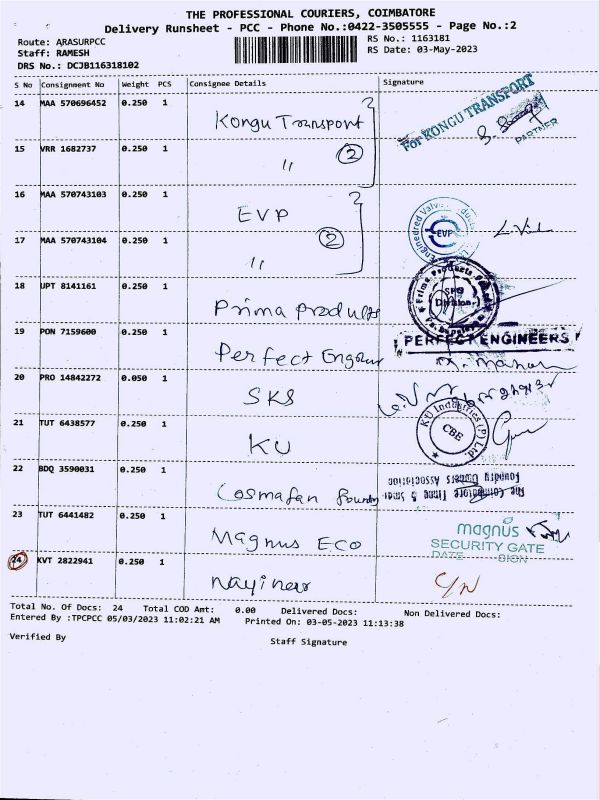 THE PROFESSIONAL COURIERS, COIMBATORE
Delivery Runsheet - PCC - Phone No.:0422-3505555 - Page No.:2
Route: ARASURPCC
RS No.: 1163181
Staff: RAMESH
RS Date: 03-May-2023
DRS No.: DCJB116318102
S No Consignment No Weight PCS Consignee Details Signature
14 MAA 570696452 0.250 1 Kongu Transport
For KONGU TRANSPORT
PARTNER
15 VRR 1682737 0.250 1 " 2
16 MAA 570743103 0.250 1 EVP
Engineered Valve
EVP
17 MAA 570743104 0.250 1 " 2
18 UPT 8141161 0.250 1 Prima Products
Prima Products
SPG
Division-1
19 PON 7159600 0.250 1 Perfect Engrs
PERFECT ENGINEERS
20 PRO 14842272 0.050 1 SKS
21 TUT 6438577 0.250 1 KU
KU Industries (P) Ltd.
CBE
22 BDQ 3590031 0.250 1 Cosmafan foundry
The Coimbatore Tiny & Small
Foundry Owners Association
23 TUT 6441482 0.250 1 Magnus Eco
magnus
SECURITY GATE
DATE SIGN
24 KVT 2822941 0.250 1 Nayiner
C/N
Total No. Of Docs: 24 Total COD Amt: 0.00 Delivered Docs: Non Delivered Docs:
Entered By :TPCPCC 05/03/2023 11:02:21 AM Printed On: 03-05-2023 11:13:38
Verified By
Staff Signature